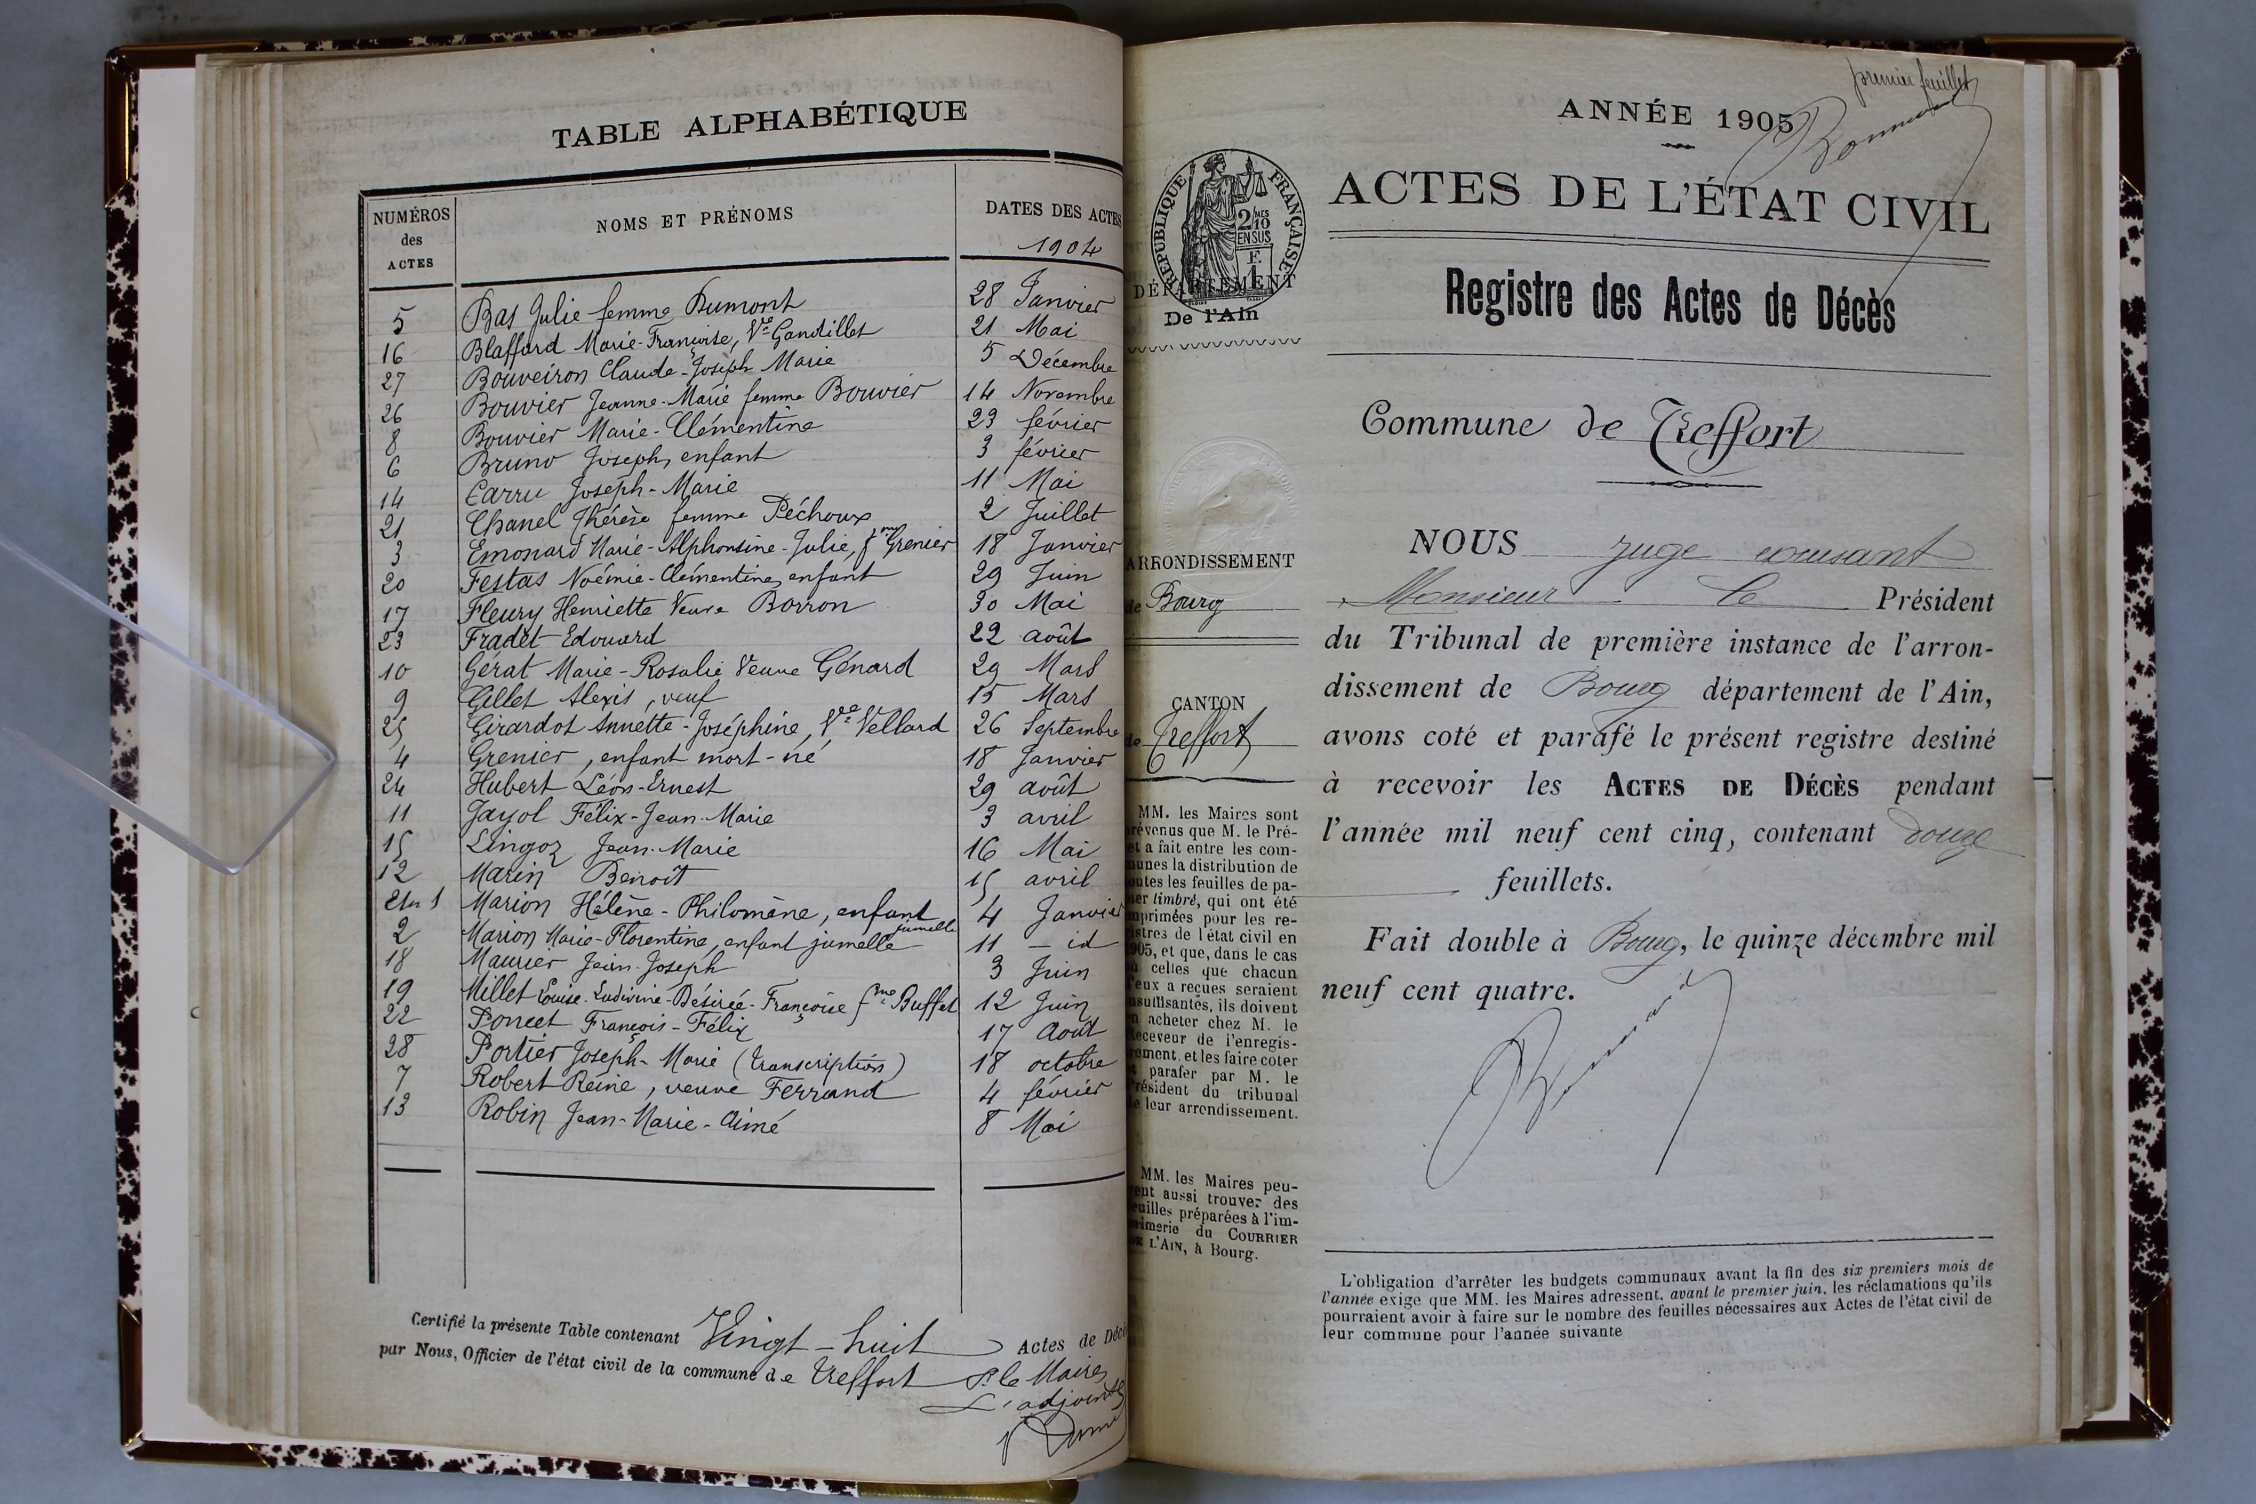 TABLE ALPHABÉTIQUE
NUMÉROS des ACTES NOMS ET PRÉNOMS DATES DES ACTES
1904
5 Bas Julie femme Dumont 28 Janvier
16 Blaffard Marie-Françoise, Vve Gandillet 21 Mai
27 Bouveiron Claude-Joseph Marie 5 Décembre
26 Bouvier Jeanne-Marie femme Bouvier 14 Novembre
8 Bouvier Marie-Clémentine 23 février
6 Bruno Joseph, enfant 3 février
14 Carru Joseph-Marie 11 Mai
21 Chanel Thérèse femme Péchoux 2 Juillet
3 Emonard Marie-Alphonsine-Julie, fme Grenier 18 Janvier
20 Festas Noémie-Clémentine, enfant 29 Juin
17 Fleury Henriette Veuve Borron 30 Mai
23 Fradet Edouard 22 août
10 Gérat Marie-Rosalie Veuve Génard 29 Mars
9 Gillet Alexis, veuf 15 Mars
25 Girardot Annette-Joséphine, Vve Vellard 26 Septembre
4 Grenier, enfant mort-né 18 Janvier
24 Hubert Léon-Ernest 29 août
11 Jayol Félix-Jean-Marie 3 avril
15 Lingoz Jean-Marie 16 Mai
12 Marin Benoît 15 avril
1 Marion Hélène-Philomène, enfant jumelle 4 Janvier
2 Marion Marie-Florentine, enfant jumelle 11 - id
18 Maurier Jean-Joseph 3 Juin
19 Millet Louise-Ludivine-Désirée-Françoise fme Buffet 12 Juin
22 Poncet François-Félix 17 Août
28 Portier Joseph-Marie (transcription) 18 octobre
7 Robert Reine, veuve Ferrand 4 février
13 Robin Jean-Marie-Aimé 8 Mai
Certifié la présente Table contenant Vingt-huit Actes de Décè
par Nous, Officier de l'état civil de la commune de Treffort
P. le Maire,
L'adjoint
premier feuillet
ANNÉE 1905
ACTES DE L'ÉTAT CIVIL
Registre des Actes de Décès
RÉPUBLIQUE FRANÇAISE
2/10 MES
EN SUS
1 F.
DÉPARTEMENT
De l'Ain
Commune de Treffort
ARRONDISSEMENT
de Bourg
CANTON
de Treffort
MM. les Maires sont
prévenus que M. le Pré-
et a fait entre les com-
munes la distribution de
toutes les feuilles de pa-
pier timbré, qui ont été
imprimées pour les re-
gistres de l'état civil en
1905, et que, dans le cas
où celles que chacun
d'eux a reçues seraient
insuffisantes, ils doivent
en acheter chez M. le
Receveur de l'enregis-
trement, et les faire coter
et parafer par M. le
Président du tribunal
de leur arrondissement.
MM. les Maires peu-
vent aussi trouver des
feuilles préparées à l'im-
primerie du COURRIER
DE L'AIN, à Bourg.
NOUS juge commsant
Monsieur le Président
du Tribunal de première instance de l'arron-
dissement de Bourg département de l'Ain,
avons coté et parafé le présent registre destiné
à recevoir les ACTES DE DÉCÈS pendant
l'année mil neuf cent cinq, contenant douze
feuillets.
Fait double à Bourg, le quinze décembre mil
neuf cent quatre.
L'obligation d'arrêter les budgets communaux avant la fin des six premiers mois de
l'année exige que MM. les Maires adressent, avant le premier juin, les réclamations qu'ils
pourraient avoir à faire sur le nombre des feuilles nécessaires aux Actes de l'état civil de
leur commune pour l'année suivante